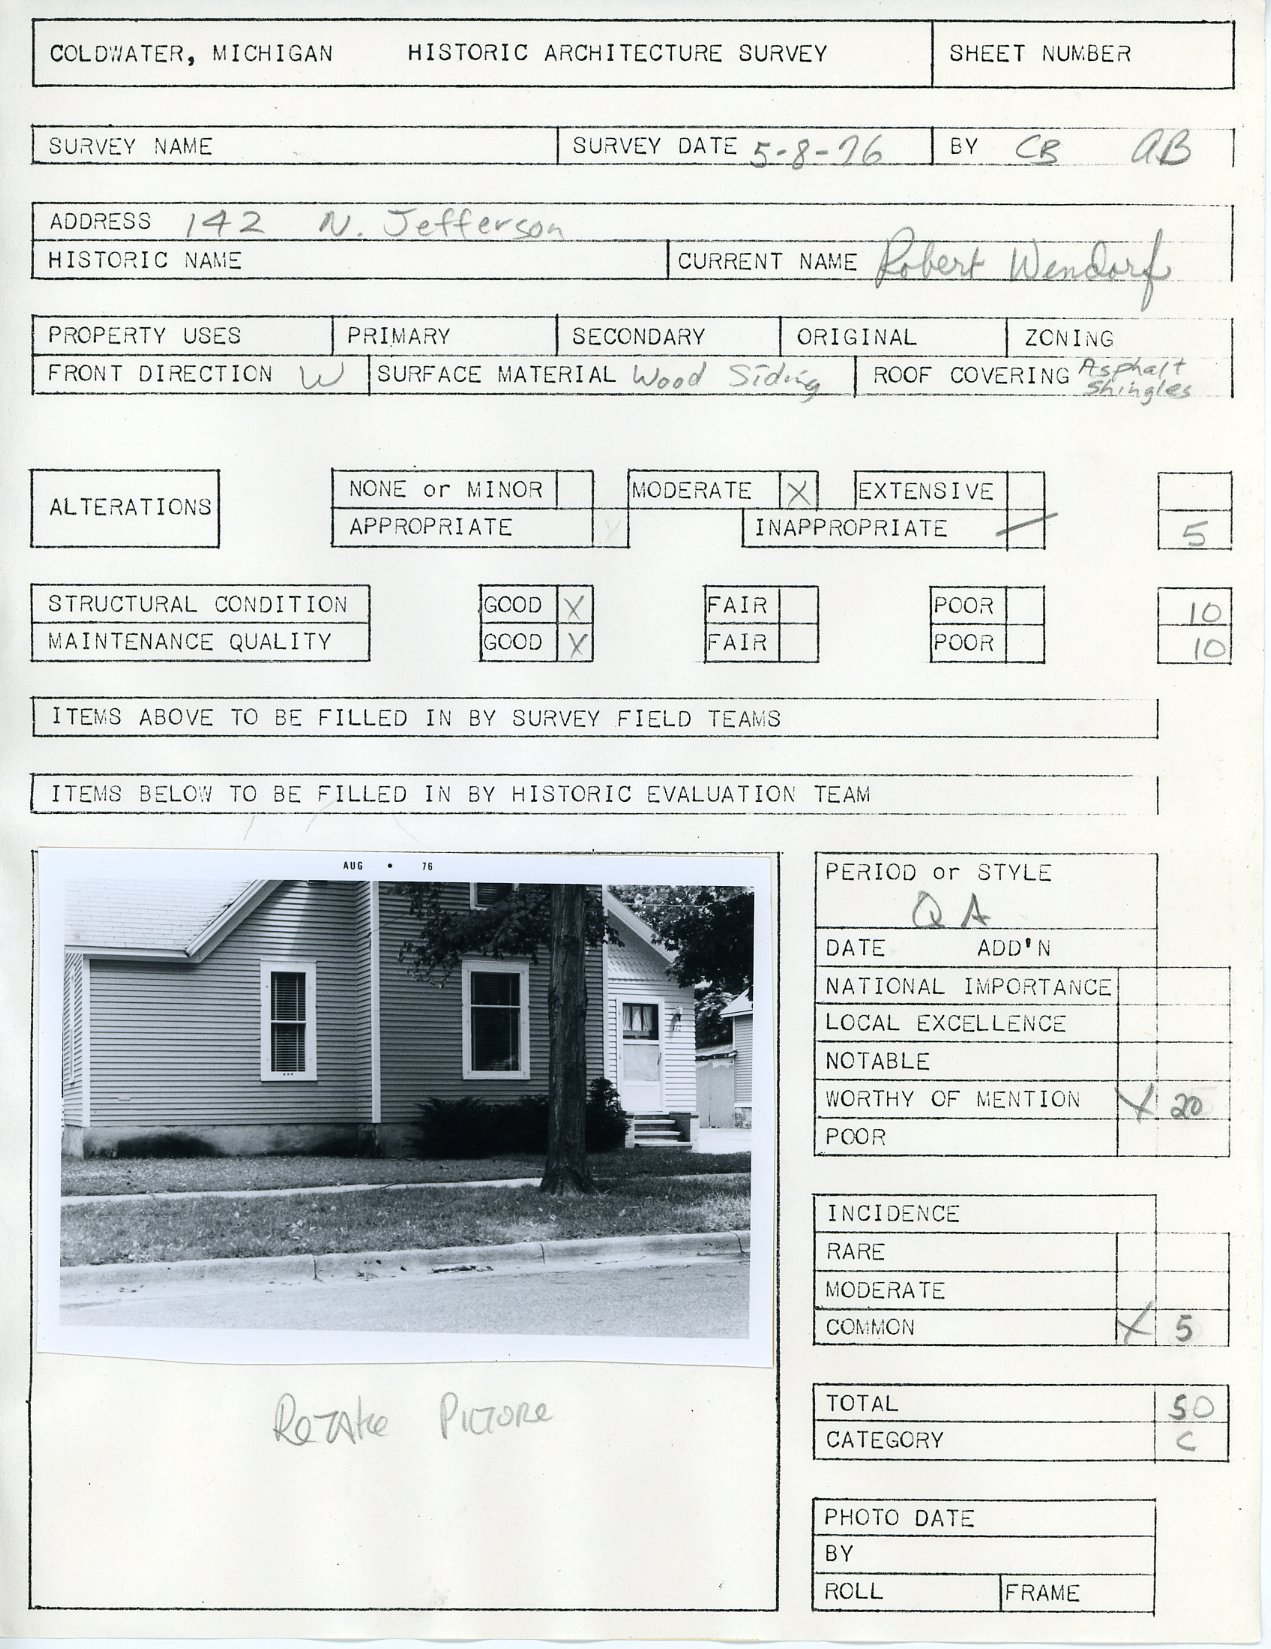 COLDWATER, MICHIGAN HISTORIC ARCHITECTURE SURVEY SHEET NUMBER
SURVEY NAME SURVEY DATE 5-8-76 BY CB AB
ADDRESS 142 N. Jefferson
HISTORIC NAME CURRENT NAME Robert Wendorf
PROPERTY USES PRIMARY SECONDARY ORIGINAL ZONING
FRONT DIRECTION W SURFACE MATERIAL Wood Siding ROOF COVERING Asphalt Shingles
ALTERATIONS NONE or MINOR MODERATE X EXTENSIVE
APPROPRIATE INAPPROPRIATE 5
STRUCTURAL CONDITION GOOD X FAIR POOR 10
MAINTENANCE QUALITY GOOD X FAIR POOR 10
ITEMS ABOVE TO BE FILLED IN BY SURVEY FIELD TEAMS
ITEMS BELOW TO BE FILLED IN BY HISTORIC EVALUATION TEAM
AUG • 76
Retake Picture
PERIOD or STYLE
QA
DATE ADD'N
NATIONAL IMPORTANCE
LOCAL EXCELLENCE
NOTABLE
WORTHY OF MENTION X 20
POOR
INCIDENCE
RARE
MODERATE
COMMON X 5
TOTAL 50
CATEGORY C
PHOTO DATE
BY
ROLL FRAME